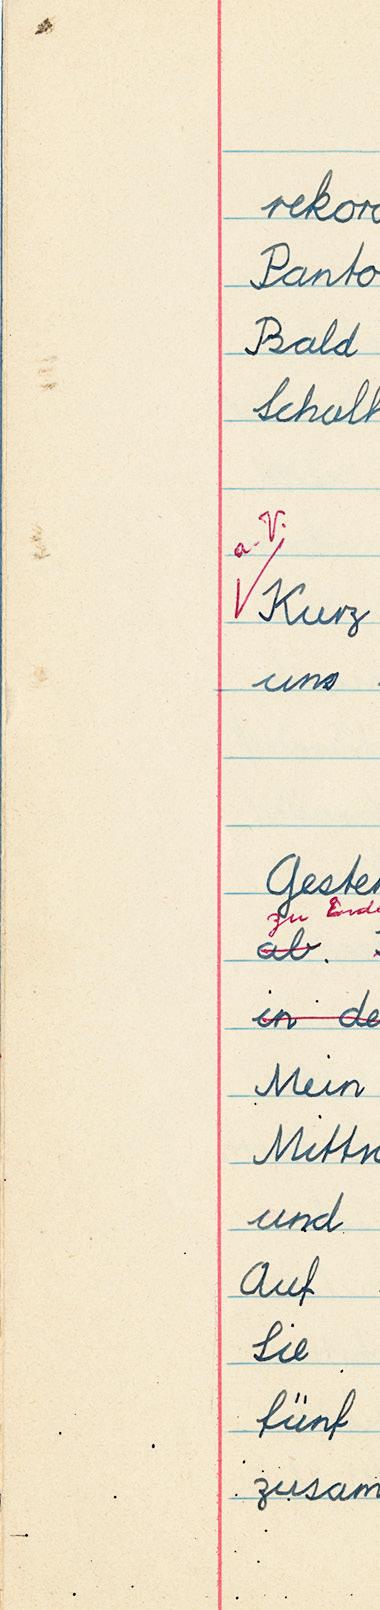 rekord
Panto
Bald
Schalt
a. V.
Kurz
uns
Gester
zu Ende
ab.
in de
Mein
Mittn
und
Auf
Sie
fünf
zusam